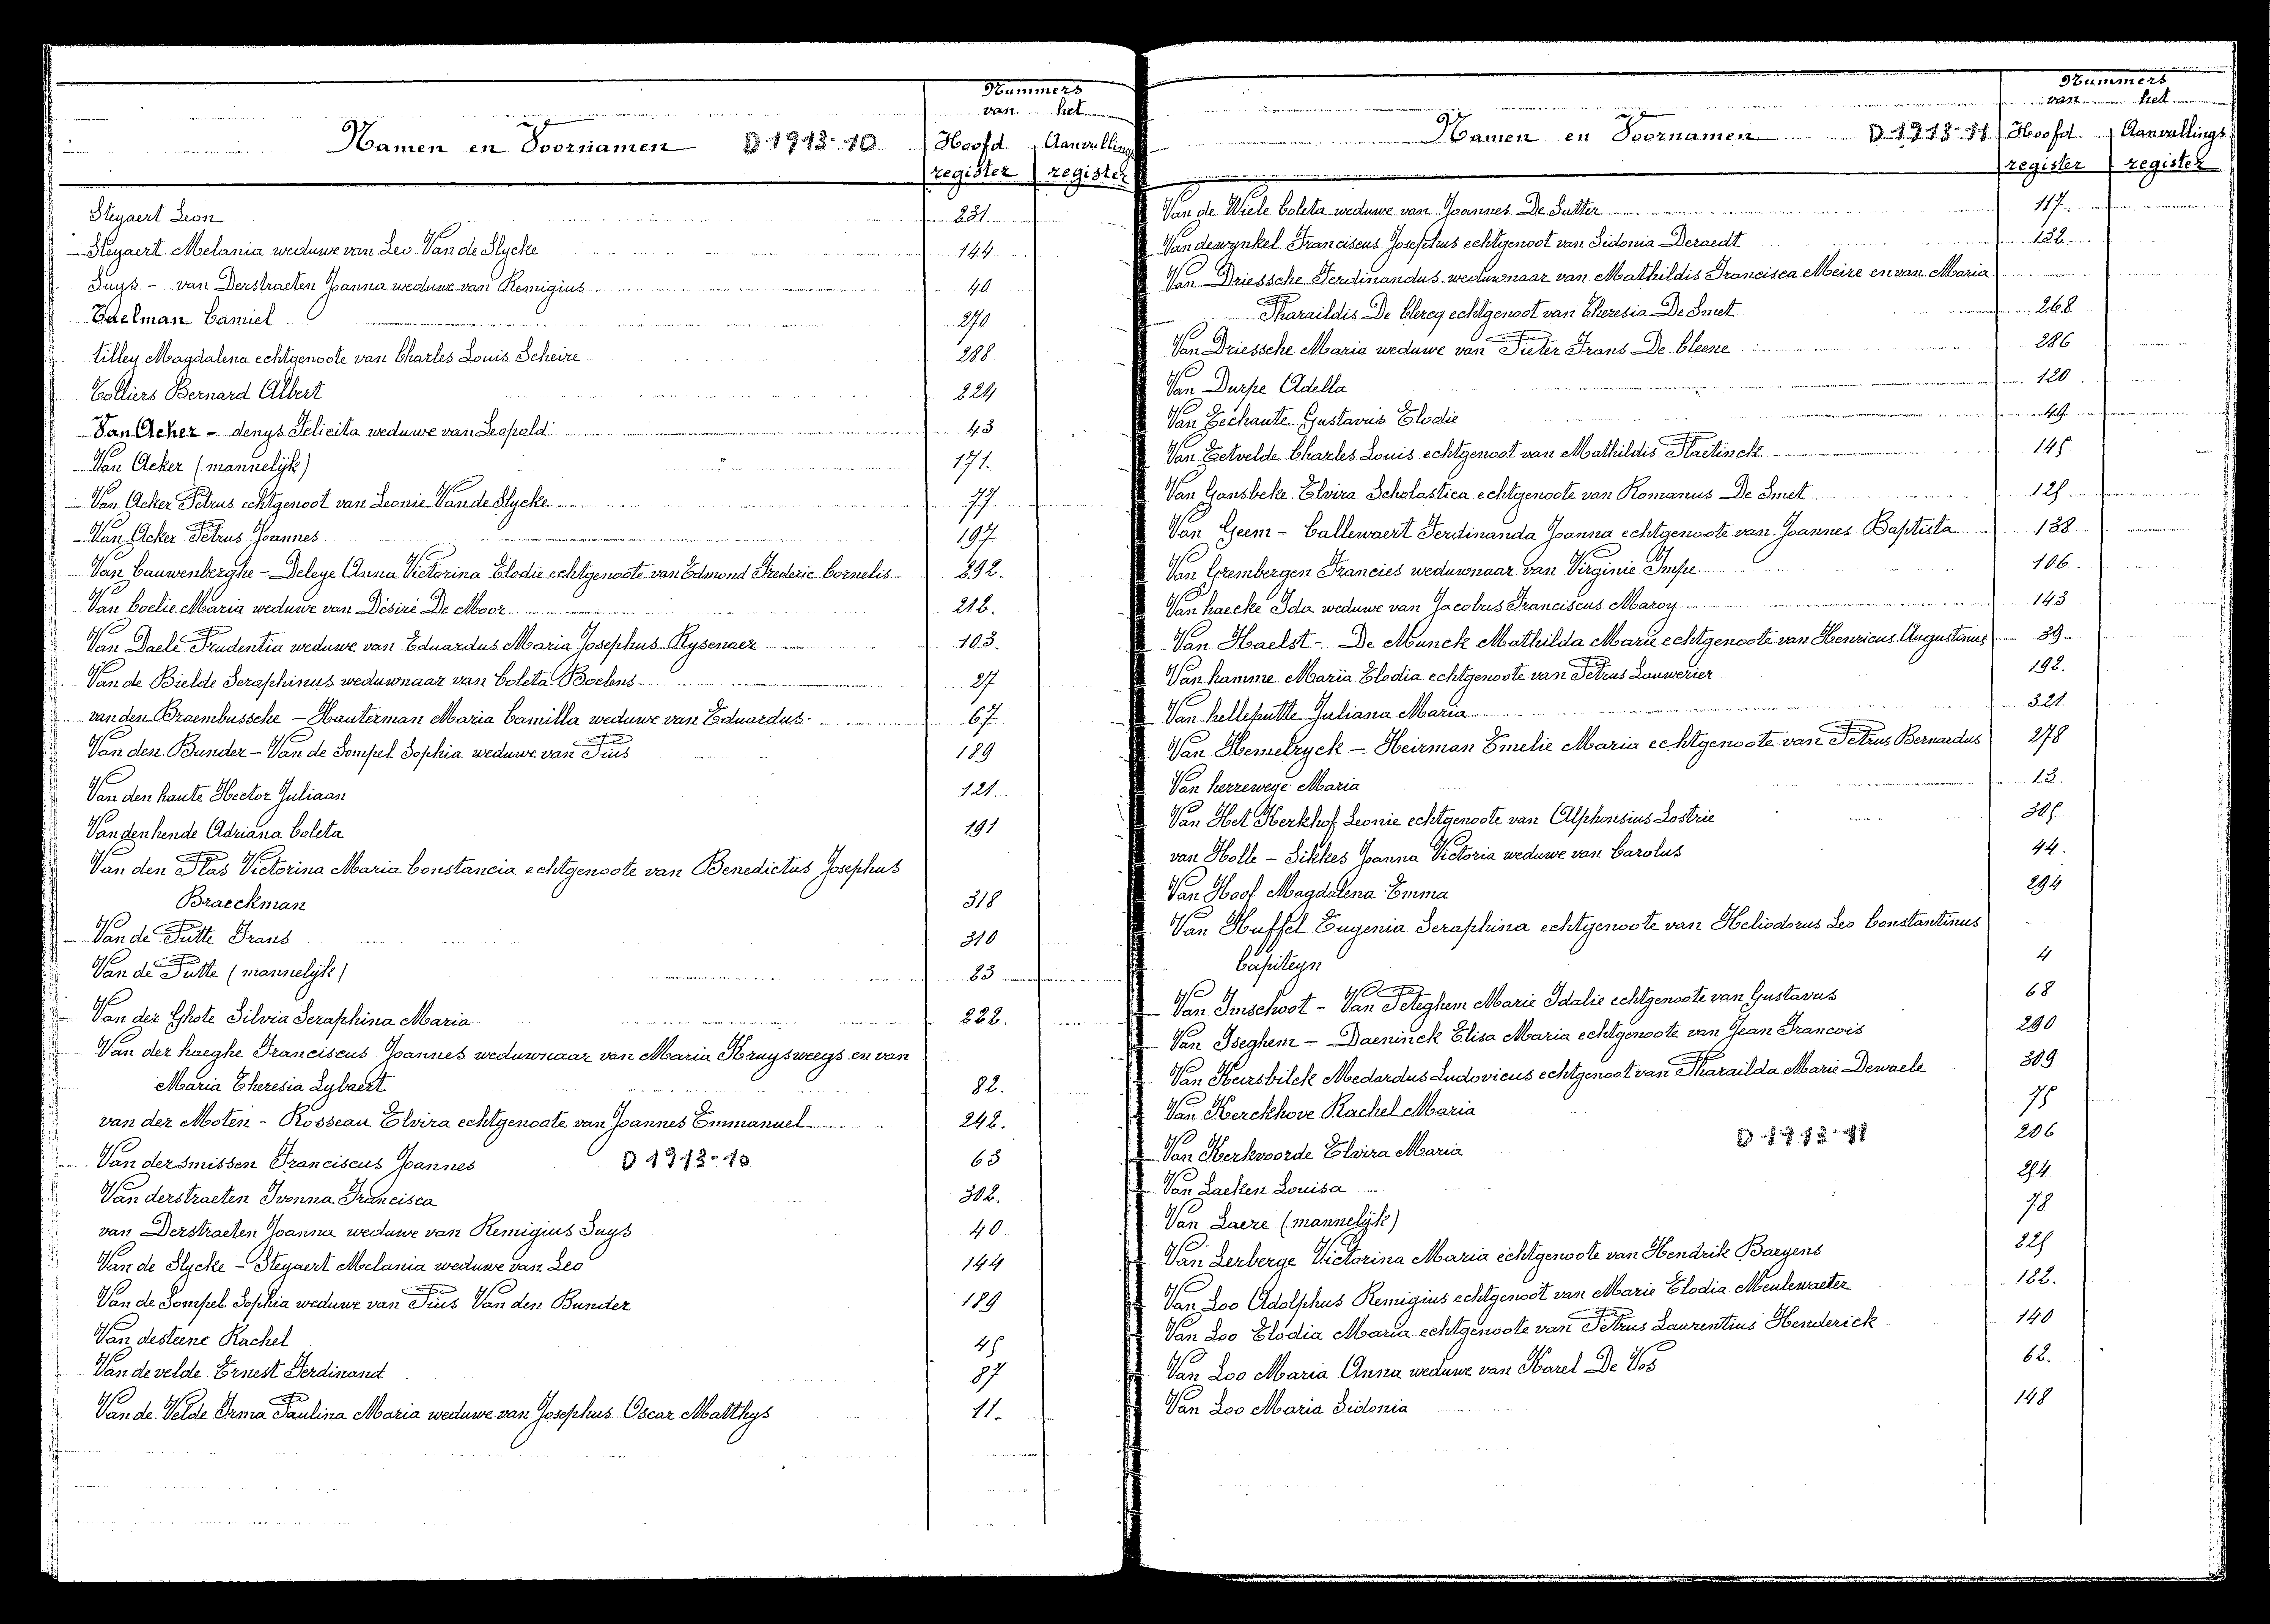 Nummers
van het
Namen en Voornamen D 1913-10 Hoofd Aanvullings
register register
Steyaert Leon 231
Steyaert Melania weduwe van Leo Van de Slycke 144
Suys - van Derstraeten Joanna weduwe van Remigius 40
Taelman Camiel 270
tilley Magdalena echtgenoote van Charles Louis Scheire 288
Tolliers Bernard Albert 224
Van Acker - denys Felicita weduwe van Leopold 43
Van Acker (mannelijk) 171.
Van Acker Petrus echtgenoot van Leonie Van de Slycke 77
Van Acker Petrus Joannes 197
Van Cauwenberghe - Deleye Anna Victorina Elodie echtgenoote van Edmond Frederic Cornelis 292.
Van Coelie Maria weduwe van Désiré De Moor 212.
Van Daele Prudentia weduwe van Eduardus Maria Josephus Rysenaer 103.
Van de Bielde Seraphinus weduwnaar van Coleta Boelens 27
van den Braembussche - Hauterman Maria Camilla weduwe van Eduardus 67
Van den Bunder - Van de Sompel Sophia weduwe van Pius 189
Van den haute Hector Juliaan 121.
Van den hende Adriana Coleta 191
Van den Plas Victorina Maria Constancia echtgenoote van Benedictus Josephus
Braeckman 318
Van de Putte Frans 310
Van de Putte (mannelijk) 23
Van der Ghote Silvia Seraphina Maria 222.
Van der haeghe Franciscus Joannes weduwnaar van Maria Kruysweegs en van
Maria Theresia Lybaert 82.
van der Moten - Rosseau Elvira echtgenoote van Joannes Emmanuel 242.
Van dersmissen Franciscus Joannes D 1913-10 63
Van derstraeten Ivonna Francisca 302.
van Derstraeten Joanna weduwe van Remigius Suys 40
Van de Slycke - Steyaert Melania weduwe van Leo 144
Van de Sompel Sophia weduwe van Pius Van den Bunder 189
Van desteene Rachel 45
Van de velde Ernest Ferdinand 87
Van de Velde Irma Paulina Maria weduwe van Josephus Oscar Matthys 11.
Nummers
van het
Namen en Voornamen D 1913-11 Hoofd Aanvullings
register register
Van de Wiele Coleta weduwe van Joannes De Sutter 117.
Van dewynkel Franciscus Josephus echtgenoot van Sidonia Deraedt 132.
Van Driessche Ferdinandus weduwnaar van Mathildis Francisca Meire en van Maria
Pharaildis De Clercq echtgenoot van Theresia De Smet 268
Van Driessche Maria weduwe van Pieter Frans De Cleene 286
Van Durpe Adella 120
Van Eechaute Gustavus Elodie 49
Van Eetvelde Charles Louis echtgenoot van Mathildis Plaetinck 145
Van Gansbeke Elvira Scholastica echtgenoote van Romanus De Smet 125
Van Geem - Callewaert Ferdinanda Joanna echtgenoote van Joannes Baptista 138
Van Grembergen Francies weduwnaar van Virginie Impe 106.
Van haecke Ida weduwe van Jacobus Franciscus Maroy 143
Van Haelst - De Munck Mathilda Marie echtgenoote van Henricus Augustinus 39
Van hamme Maria Elodia echtgenoote van Petrus Lauwerier 192.
Van helleputte Juliana Maria 321
Van Hemelryck - Heirman Emelie Maria echtgenoote van Petrus Bernardus 278
Van herrewege Maria 13.
Van Het Kerkhof Leonie echtgenoote van Alphonsius Lostrie 305
van Holle - Sikkes Joanna Victoria weduwe van Carolus 44.
Van Hoof Magdalena Emma 294
Van Huffel Eugenia Seraphina echtgenoote van Heliodorus Leo Constantinus
Capiteyn 4
Van Imschoot - Van Peteghem Marie Idalie echtgenoote van Gustavus 68
Van Iseghem - Daeninck Elisa Maria echtgenoote van Jean Francois 290
Van Keirsbilck Medardus Ludovicus echtgenoot van Pharailda Marie Dewaele 309
Van Kerckhove Rachel Maria 75
Van Kerkvoorde Elvira Maria D 1913-11 206
Van Laeken Louisa 254
Van Laere (mannelijk) 78
Van Lerberge Victorina Maria echtgenoote van Hendrik Baeyens 225
Van Loo Adolphus Remigius echtgenoot van Marie Elodia Meulewaeter 182.
Van Loo Elodia Maria echtgenoote van Petrus Laurentius Henderick 140
Van Loo Maria Anna weduwe van Karel De Vos 62.
Van Loo Maria Sidonia 148